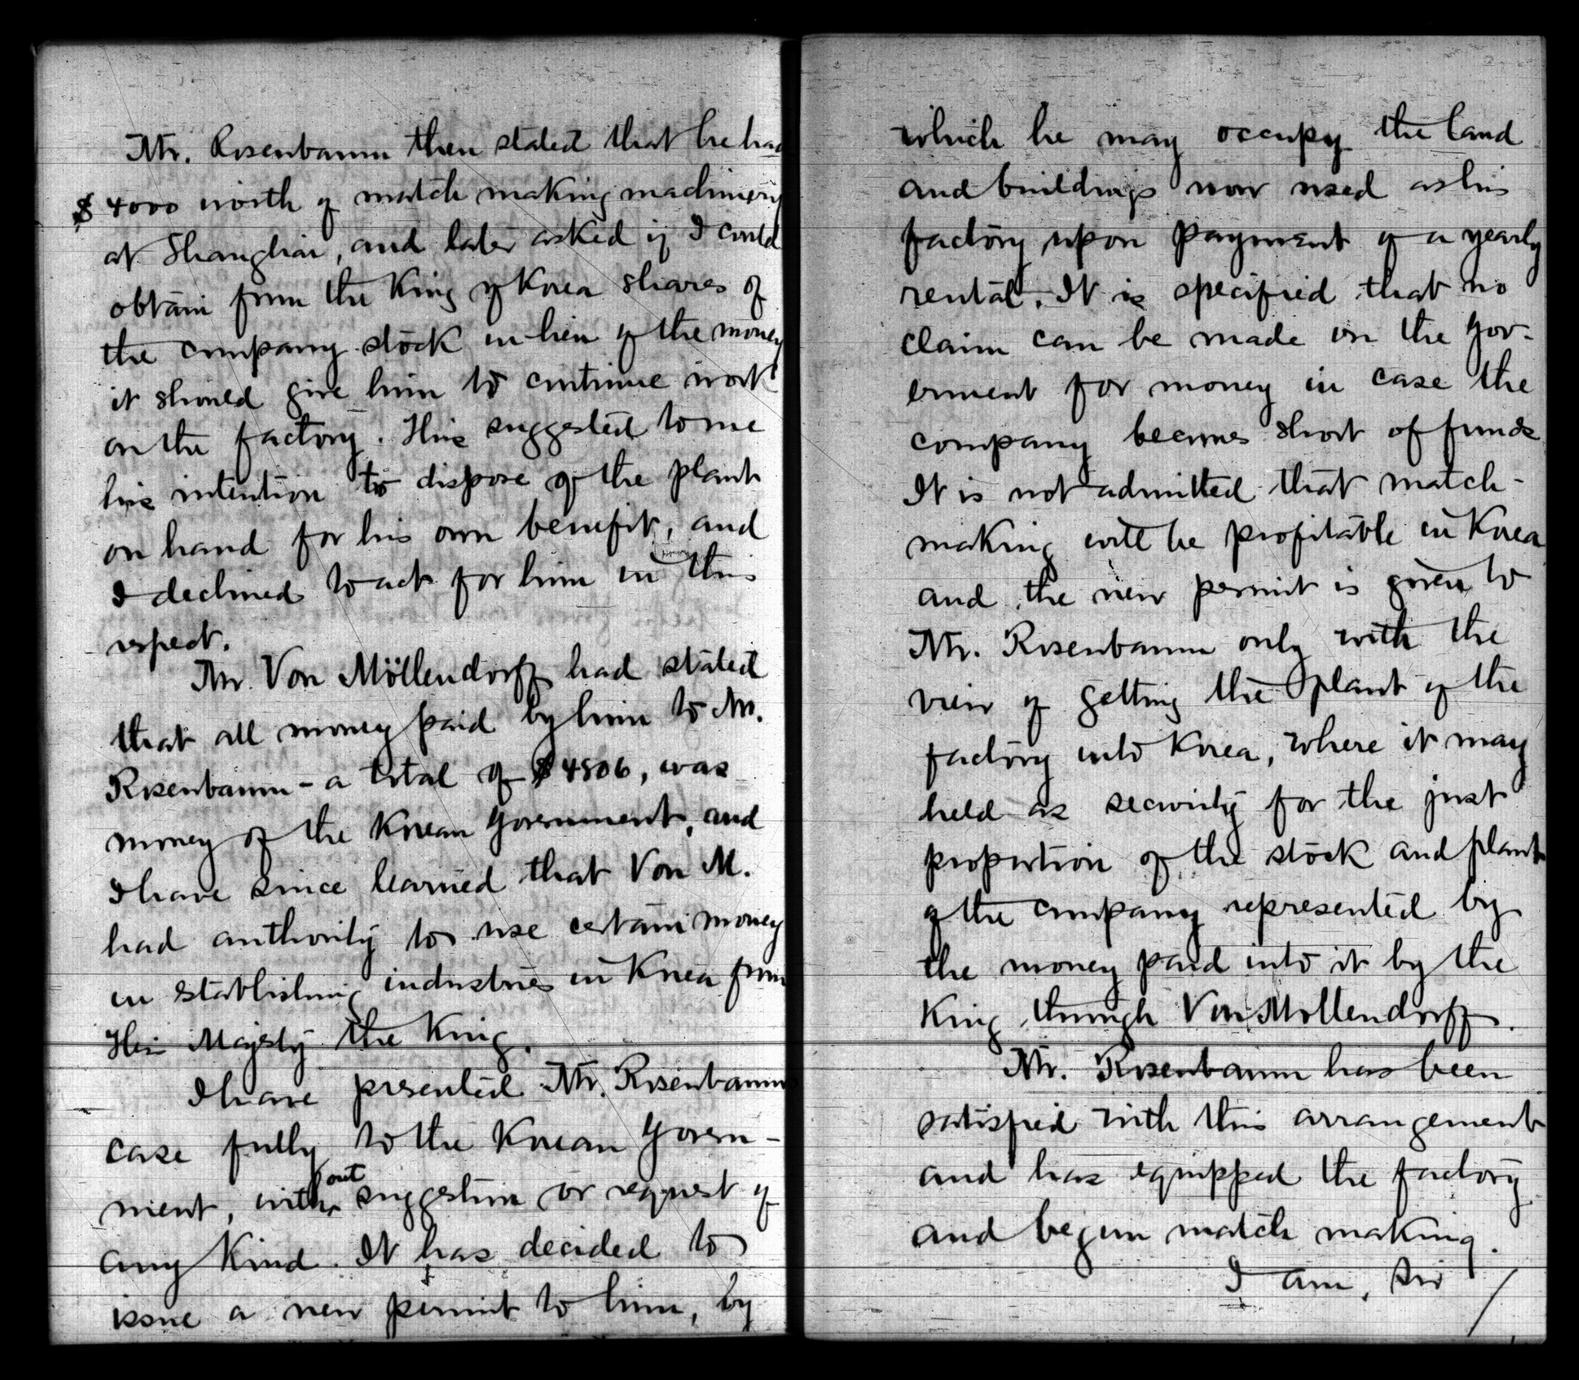 Mr. Rosenbaum then stated that he had
$4000 worth of match making machinery
at Shanghai, and later asked if I could
obtain from the King of Korea shares of
the company stock in lieu of the money
it should give him to continue work
on the factory. This suggested to me
his intention to dispose of the plant
on hand for his own benefit, and
I declined to act for him in this
respect.
Mr. Von Möllendorff had stated
that all money paid by him to Mr.
Rosenbaum - a total of $4506, was
money of the Korean Government, and
I have since learned that Von M.
had authority to use certain money
in establishing industries in Korea from
His Majesty the King.
I have presented Mr. Rosenbaums
case fully to the Korean Govern-
ment, without suggestion or request of
any kind. It has decided to
issue a new permit to him, by
which he may occupy the land
and buildings now used as his
factory upon payment of a yearly
rental. It is specified that no
claim can be made on the Gov-
ernment for money in case the
company becomes short of funds
It is not admitted that match-
making will be profitable in Korea
and the new permit is given to
Mr. Rosenbaum only with the
view of getting the plant of the
factory into Korea, where it may
held as security for the just
proportion of the stock and plant
of the company represented by
the money paid into it by the
King through Von Mollendorff.
Mr. Rosenbaum has been
satisfied with this arrangement
and has equipped the factory
and begun match making.
I am, Sir